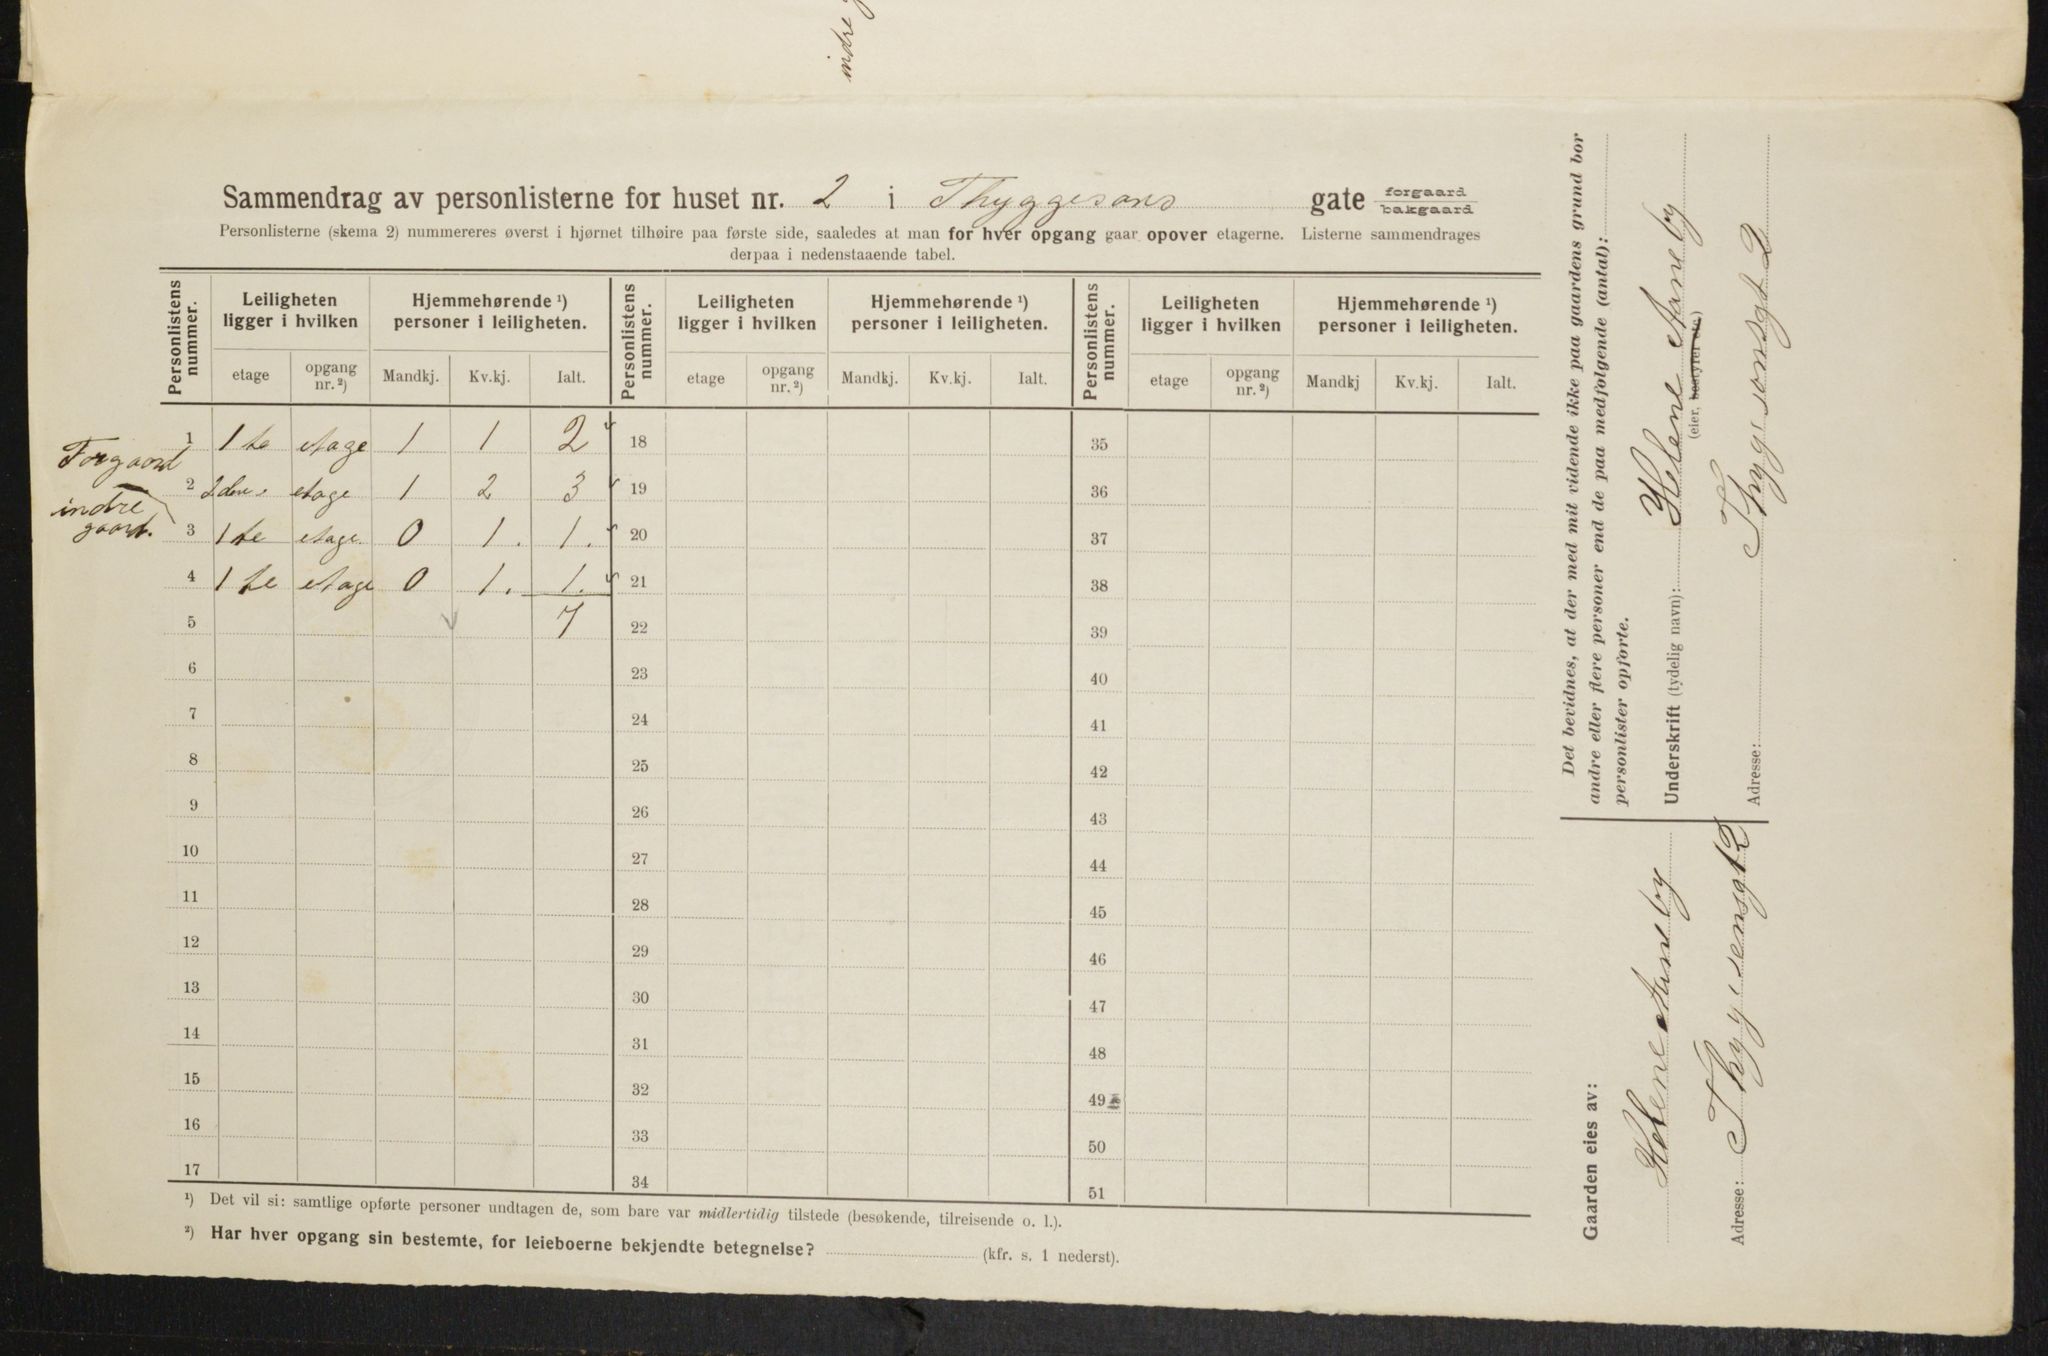 indre
Sammendrag av personlisterne for huset nr. 2 i Thyggesons gate forgaard
bakgaard
Personlisterne (skema 2) nummereres øverst i hjørnet tilhøire paa første side, saaledes at man for hver opgang gaar opover etagerne. Listerne sammendrages
derpaa i nedenstaaende tabel.
Personlistens nummer. Leiligheten ligger i hvilken Hjemmehørende ¹) personer i leiligheten. Personlistens nummer. Leiligheten ligger i hvilken Hjemmehørende ¹) personer i leiligheten. Personlistens nummer. Leiligheten ligger i hvilken Hjemmehørende ¹) personer i leiligheten.
etage opgang nr. ²) Mandkj. Kv.kj. Ialt. etage opgang nr. ²) Mandkj. Kv.kj. Ialt. etage opgang nr. ²) Mandkj Kv.kj. Ialt.
1 1te etage 1 1 2 18 35
Forgaard
2 2den etage 1 2 3 19 36
indre
gaard.
3 1te etage 0 1. 1. 20 37
4 1te etage 0 1. 1. 21 38
5 7 22 39
6 23 40
7 24 41
8 25 42
9 26 43
10 27 44
11 28 45
12 29 46
13 30 47
14 31 48
15 32 49
16 33 50
17 34 51
¹) Det vil si: samtlige opførte personer undtagen de, som bare var midlertidig tilstede (besøkende, tilreisende o. l.).
²) Har hver opgang sin bestemte, for leieboerne bekjendte betegnelse? (kfr. s. 1 nederst).
Det bevidnes, at der med mit vidende ikke paa gaardens grund bor
andre eller flere personer end de paa medfølgende (antal):
personlister opførte.
Underskrift (tydelig navn): Helene Aaneby
(eier, bestyrer etc.)
Adresse: Thygesonsgt 2
Gaarden eies av:
Helene Aaneby
Adresse: Thygesensgt 2